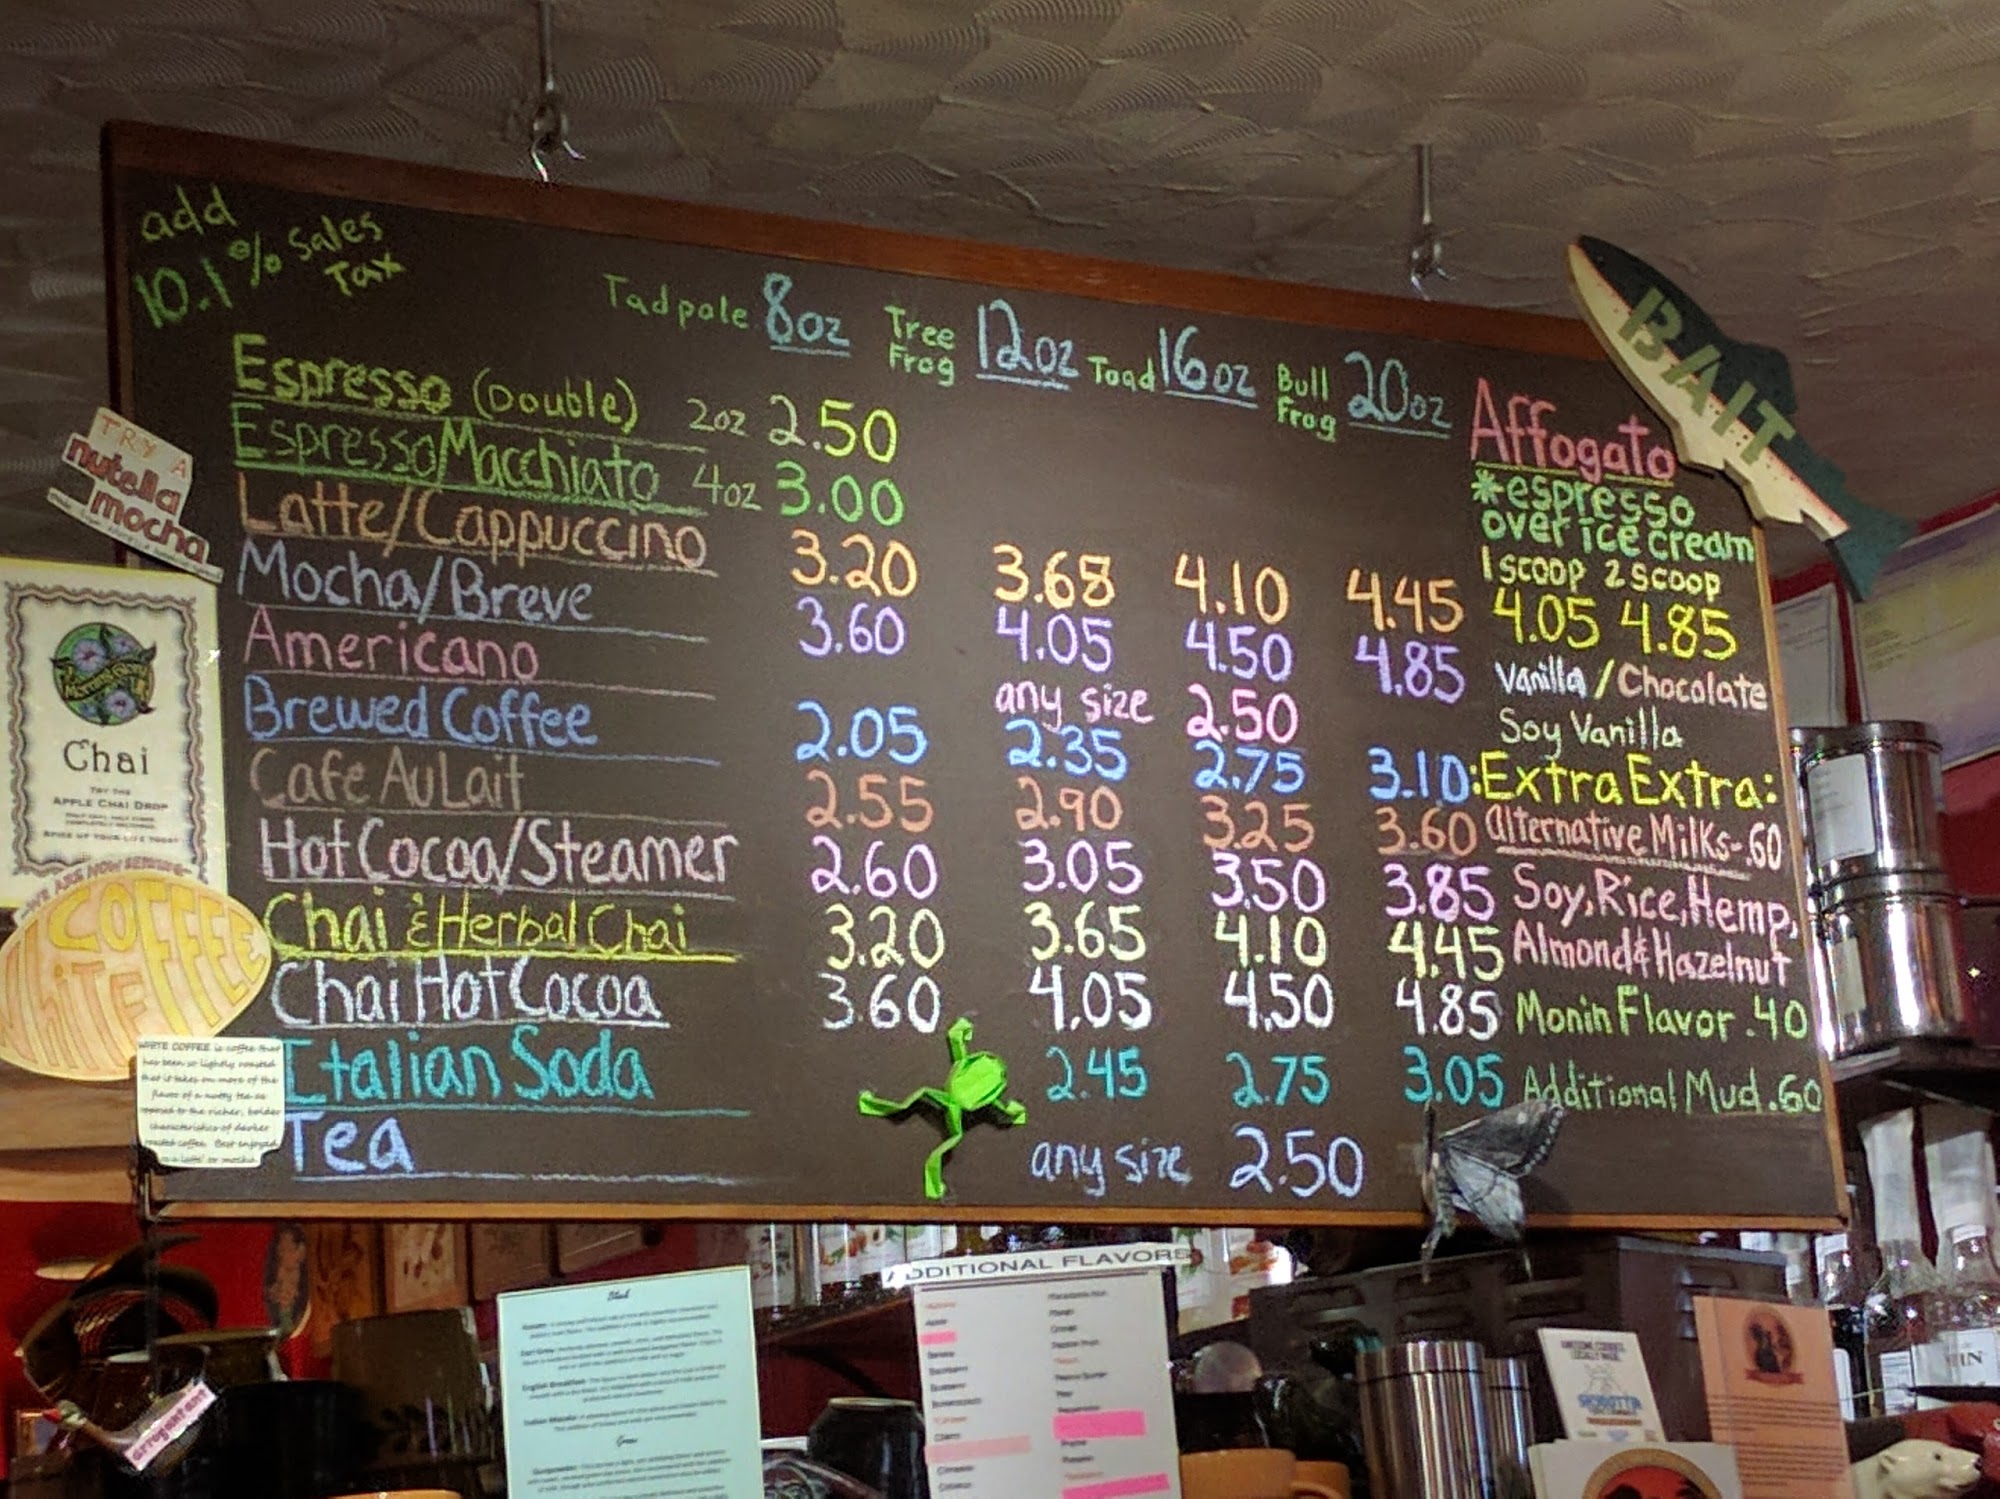 add
10.1% sales
Tax
Tadpole 8oz Tree Frog 12oz Toad 16oz Bull Frog 20oz
Espresso (Double) 2oz 2.50
Espresso Macchiato 4oz 3.00
Latte/Cappuccino 3.20 3.68 4.10 4.45
Mocha/Breve 3.60 4.05 4.50 4.85
Americano any size 2.50
Brewed Coffee 2.05 2.35 2.75 3.10
Cafe Au Lait 2.55 2.90 3.25 3.60
Hot Cocoa/Steamer 2.60 3.05 3.50 3.85
Chai & Herbal Chai 3.20 3.65 4.10 4.45
Chai Hot Cocoa 3.60 4.05 4.50 4.85
Italian Soda 2.45 2.75 3.05
Tea any size 2.50
BAIT
Affogato
*espresso
over ice cream
1 scoop 2 scoop
4.05 4.85
Vanilla/Chocolate
Soy Vanilla
:Extra Extra:
Alternative Milks-.60
Soy, Rice, Hemp,
Almond & Hazelnut
Monin Flavor .40
Additional Mud .60
TRY A
nutella
mocha
Morning Glory
Chai
TRY THE
APPLE CHAI DROP
SPICE UP YOUR LIFE TODAY
-WE ARE NOW SERVING-
WHITE COFFEE
WHITE COFFEE is coffee that
has been so lightly roasted
that it takes on more of the
flavor of a nutty tea as
opposed to the richer, bolder
characteristics of darker
roasted coffee. Best enjoyed
as a latte or mocha.
ADDITIONAL FLAVORS
Black
Earl Grey
English Breakfast
Green